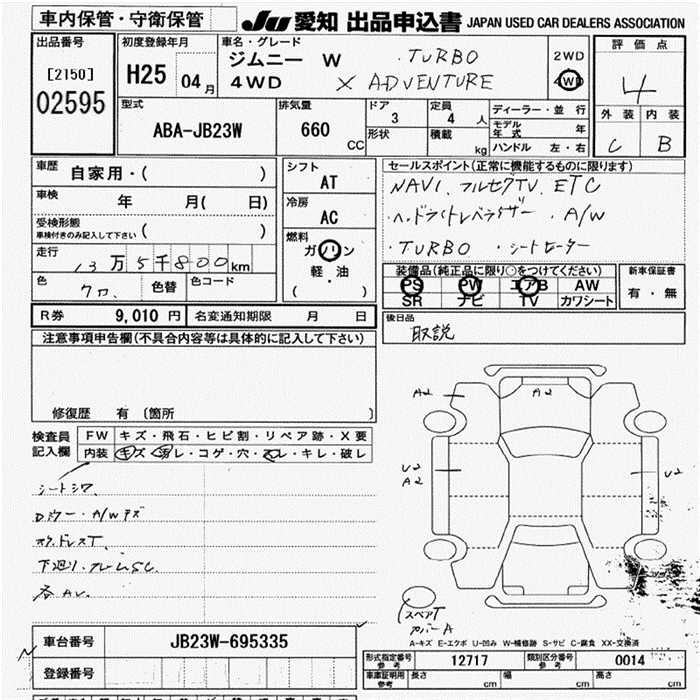 車内保管・守衛保管
JU 愛知 出品申込書 JAPAN USED CAR DEALERS ASSOCIATION
出品番号
[2150]
02595
初度登録年月
H25 04月
車名・グレード
ジムニー W ・TURBO
4WD X ADVENTURE
2WD
4WD
評価点
4
外装 内装
C B
型式
ABA-JB23W
排気量
660 CC
ドア
3
形状
定員
4 人
積載 kg
ディーラー・並行
モデル年式 年
ハンドル 左・右
車歴 自家用・( )
車検 年 月( 日)
受検形態
車検付きのみ記入して下さい ( )
走行 13万5千800km
色 クロ 色替 色コード
シフト
AT
冷房
AC
燃料
ガソリン
軽・油
( )
セールスポイント(正常に機能するものに限ります)
NAVI、フルセグTV、ETC
・ヘッドライトレベライザー ・A/W
・TURBO ・シートヒーター
装備品(純正品に限り○をつけてください)
PS PW エアB AW
SR ナビ TV カワシート
新車保証書
有・無
R券 9,010円 名変通知期限 月 日
後日品
取説
注意事項申告欄(不具合内容等は具体的に記入して下さい)
修復歴 有 〔箇所 〕
検査員記入欄
FW キズ・飛石・ヒビ割・リペア跡・X要
内装 キズ・汚レ・コゲ・穴・スレ・キレ・破レ
シートシワ
Dミラー・A/Wキズ
下廻り・フレームSC
A2
A2
U2
A2
U2
スペアT
カバーA
A-キズ E-エクボ U-凹み W-補修跡 S-サビ C-腐食 XX-交換済
車台番号 JB23W-695335
登録番号
形式指定番号 参考 12717 類別区分番号 参考 0014
車庫証明用 参考 長さ cm 幅 cm 高さ cm